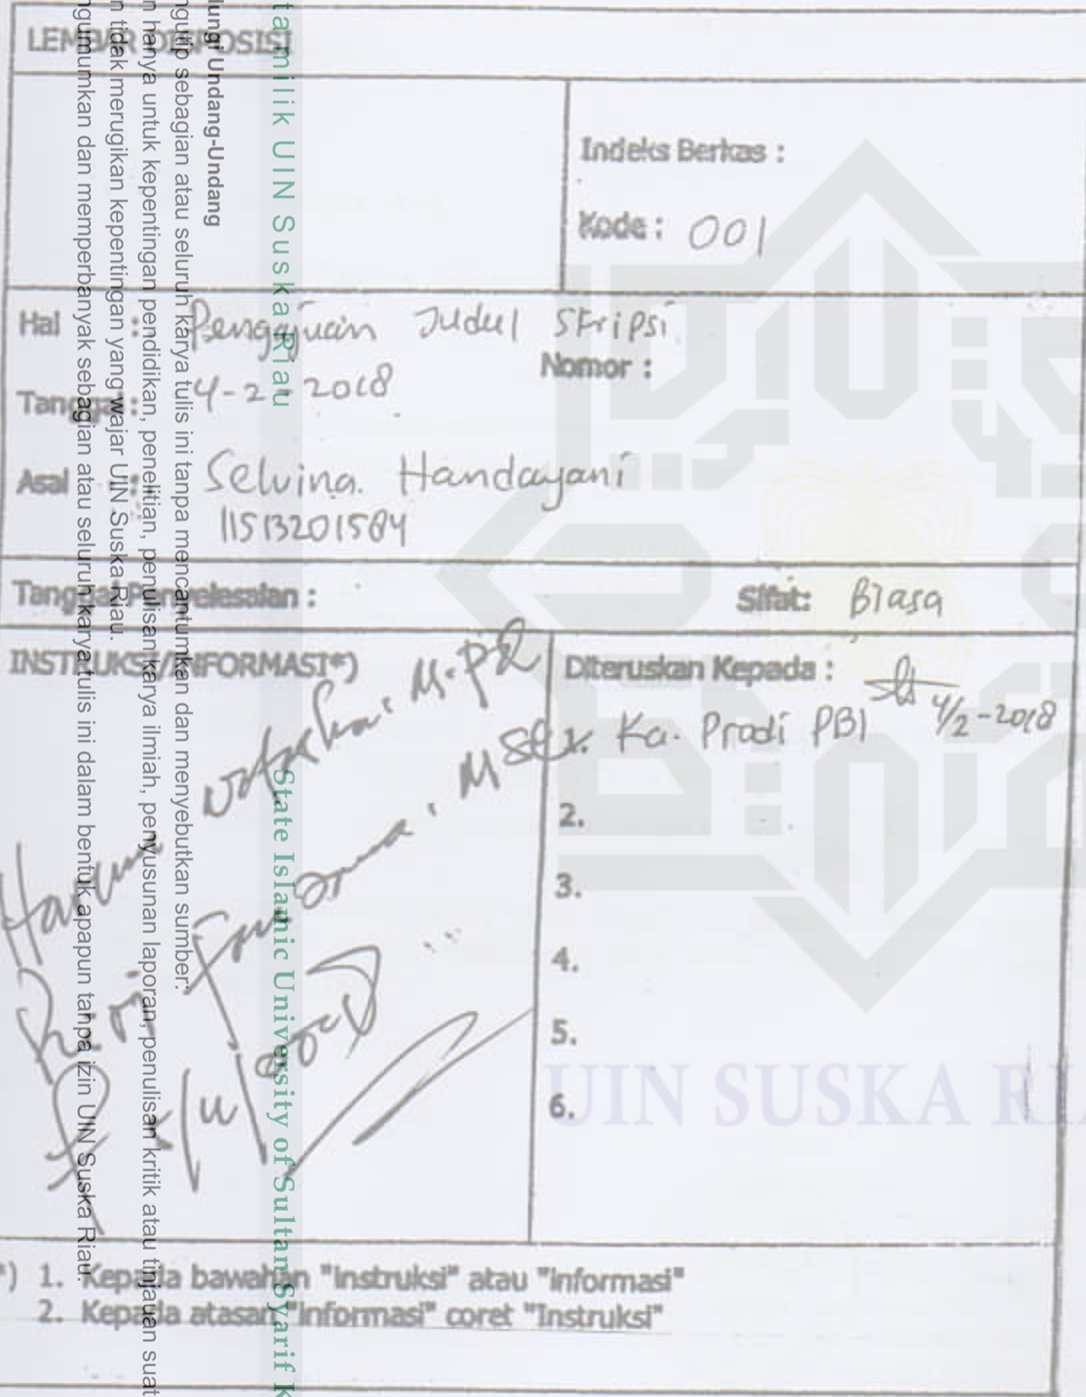 LEMBAR DISPOSISI
Indeks Berkas :
Kode : 001
Hal : Pengajuan Judul Skripsi
Nomor :
Tanggal : 4-2-2018
Asal : Selvina Handayani
11513201584
Tanggal Penyelesaian :
Sifat: Biasa
INSTRUKSI/INFORMASI*)
Diteruskan Kepada :
4/2-2018
1. Ka. Prodi PBI
2.
3.
4.
5.
6.
*) 1. Kepada bawahan "instruksi" atau "informasi"
2. Kepada atasan "informasi" coret "Instruksi"
ta milik UIN Suska Riau
State Islamic University of Sultan Syarif K
lungi Undang-Undang
ngutip sebagian atau seluruh karya tulis ini tanpa mencantumkan dan menyebutkan sumber:
n hanya untuk kepentingan pendidikan, penelitian, penulisan karya ilmiah, penyusunan laporan, penulisan kritik atau tinjauan suat
n tidak merugikan kepentingan yang wajar UIN Suska Riau.
ngumumkan dan memperbanyak sebagian atau seluruh karya tulis ini dalam bentuk apapun tanpa izin UIN Suska Riau.
UIN SUSKA RI